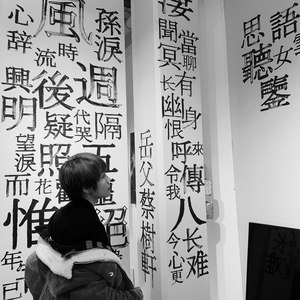 語女
思聽鑒
當聊有身來傳八长难
淒聞冥长幽恨呼令我今心更
岳父蔡樹軒
孫淚週隔五絕
風時後代哭疑照
心辞流興明望淚花而惟年已